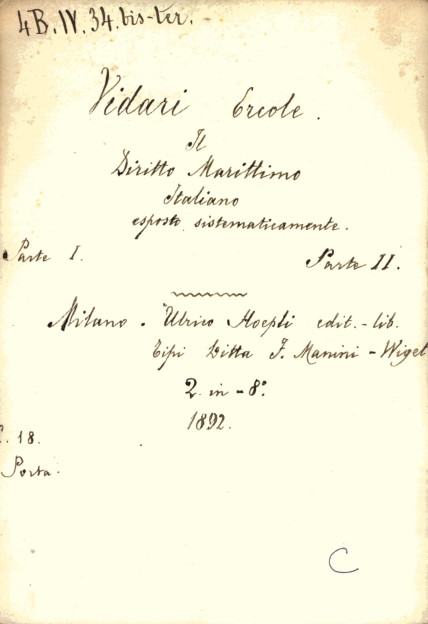 4B.IV.34.bis-ter.
Vidari Ercole.
Il
Diritto Marittimo
Italiano
esposto sistematicamente.
Parte I. Parte II.
Milano. Ulrico Hoepli edit.-lib.
Tipi Ditta F. Manini-Wiget
2. in-8°.
1892.
. 18.
Porta.
C